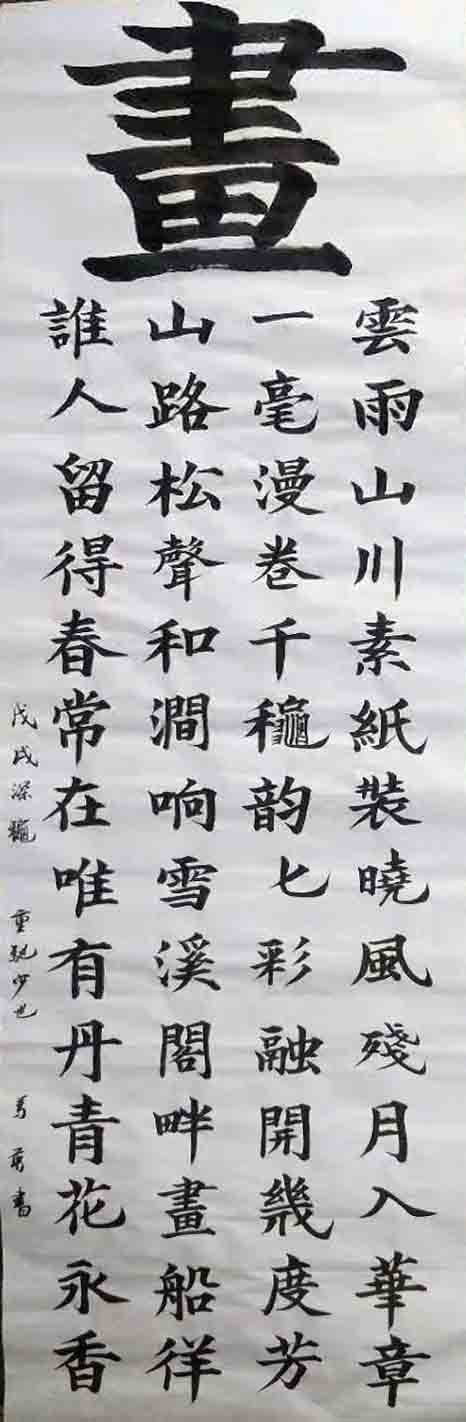 畫
雲雨山川素紙裝曉風殘月入華章
一毫漫卷千龝韵七彩融開幾度芳
山路松聲和澗响雪溪閣畔畫船徉
誰人留得春常在唯有丹青花永香
戊戌深龝
書